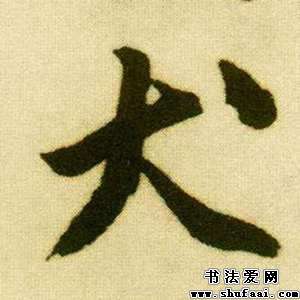 犬
书法爱网
www.shufaai.com